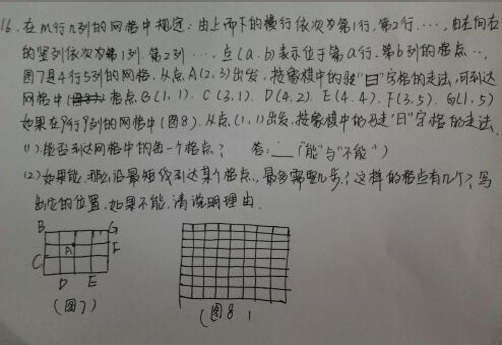 16. 在m行n列的网格中规定:由上而下的横行依次为第1行,第2行,…,由左向右
的竖列依次为第1列,第2列…,点(a,b)表示位于第a行,第b列的格点…,
图7是4行5列的网格.从点A(2,3)出发,按象棋中的"日"字格的走法,可到达
网格中格点B(1,1).C(3,1).D(4,2).E(4,4).F(3,5).G(1,5)
如果在9行9列的网格中(图8).从点(1,1)出发,按象棋中马走"日"字格的走法,
(1).能否到达网格中的每一个格点? 答:___("能"与"不能")
(2)如果能,那么沿最短线到达某个格点,最多需要几步?这样的格点有几个?写
出它的位置.如果不能,请说明理由.
B G
A F
C
D E
(图7) (图8)